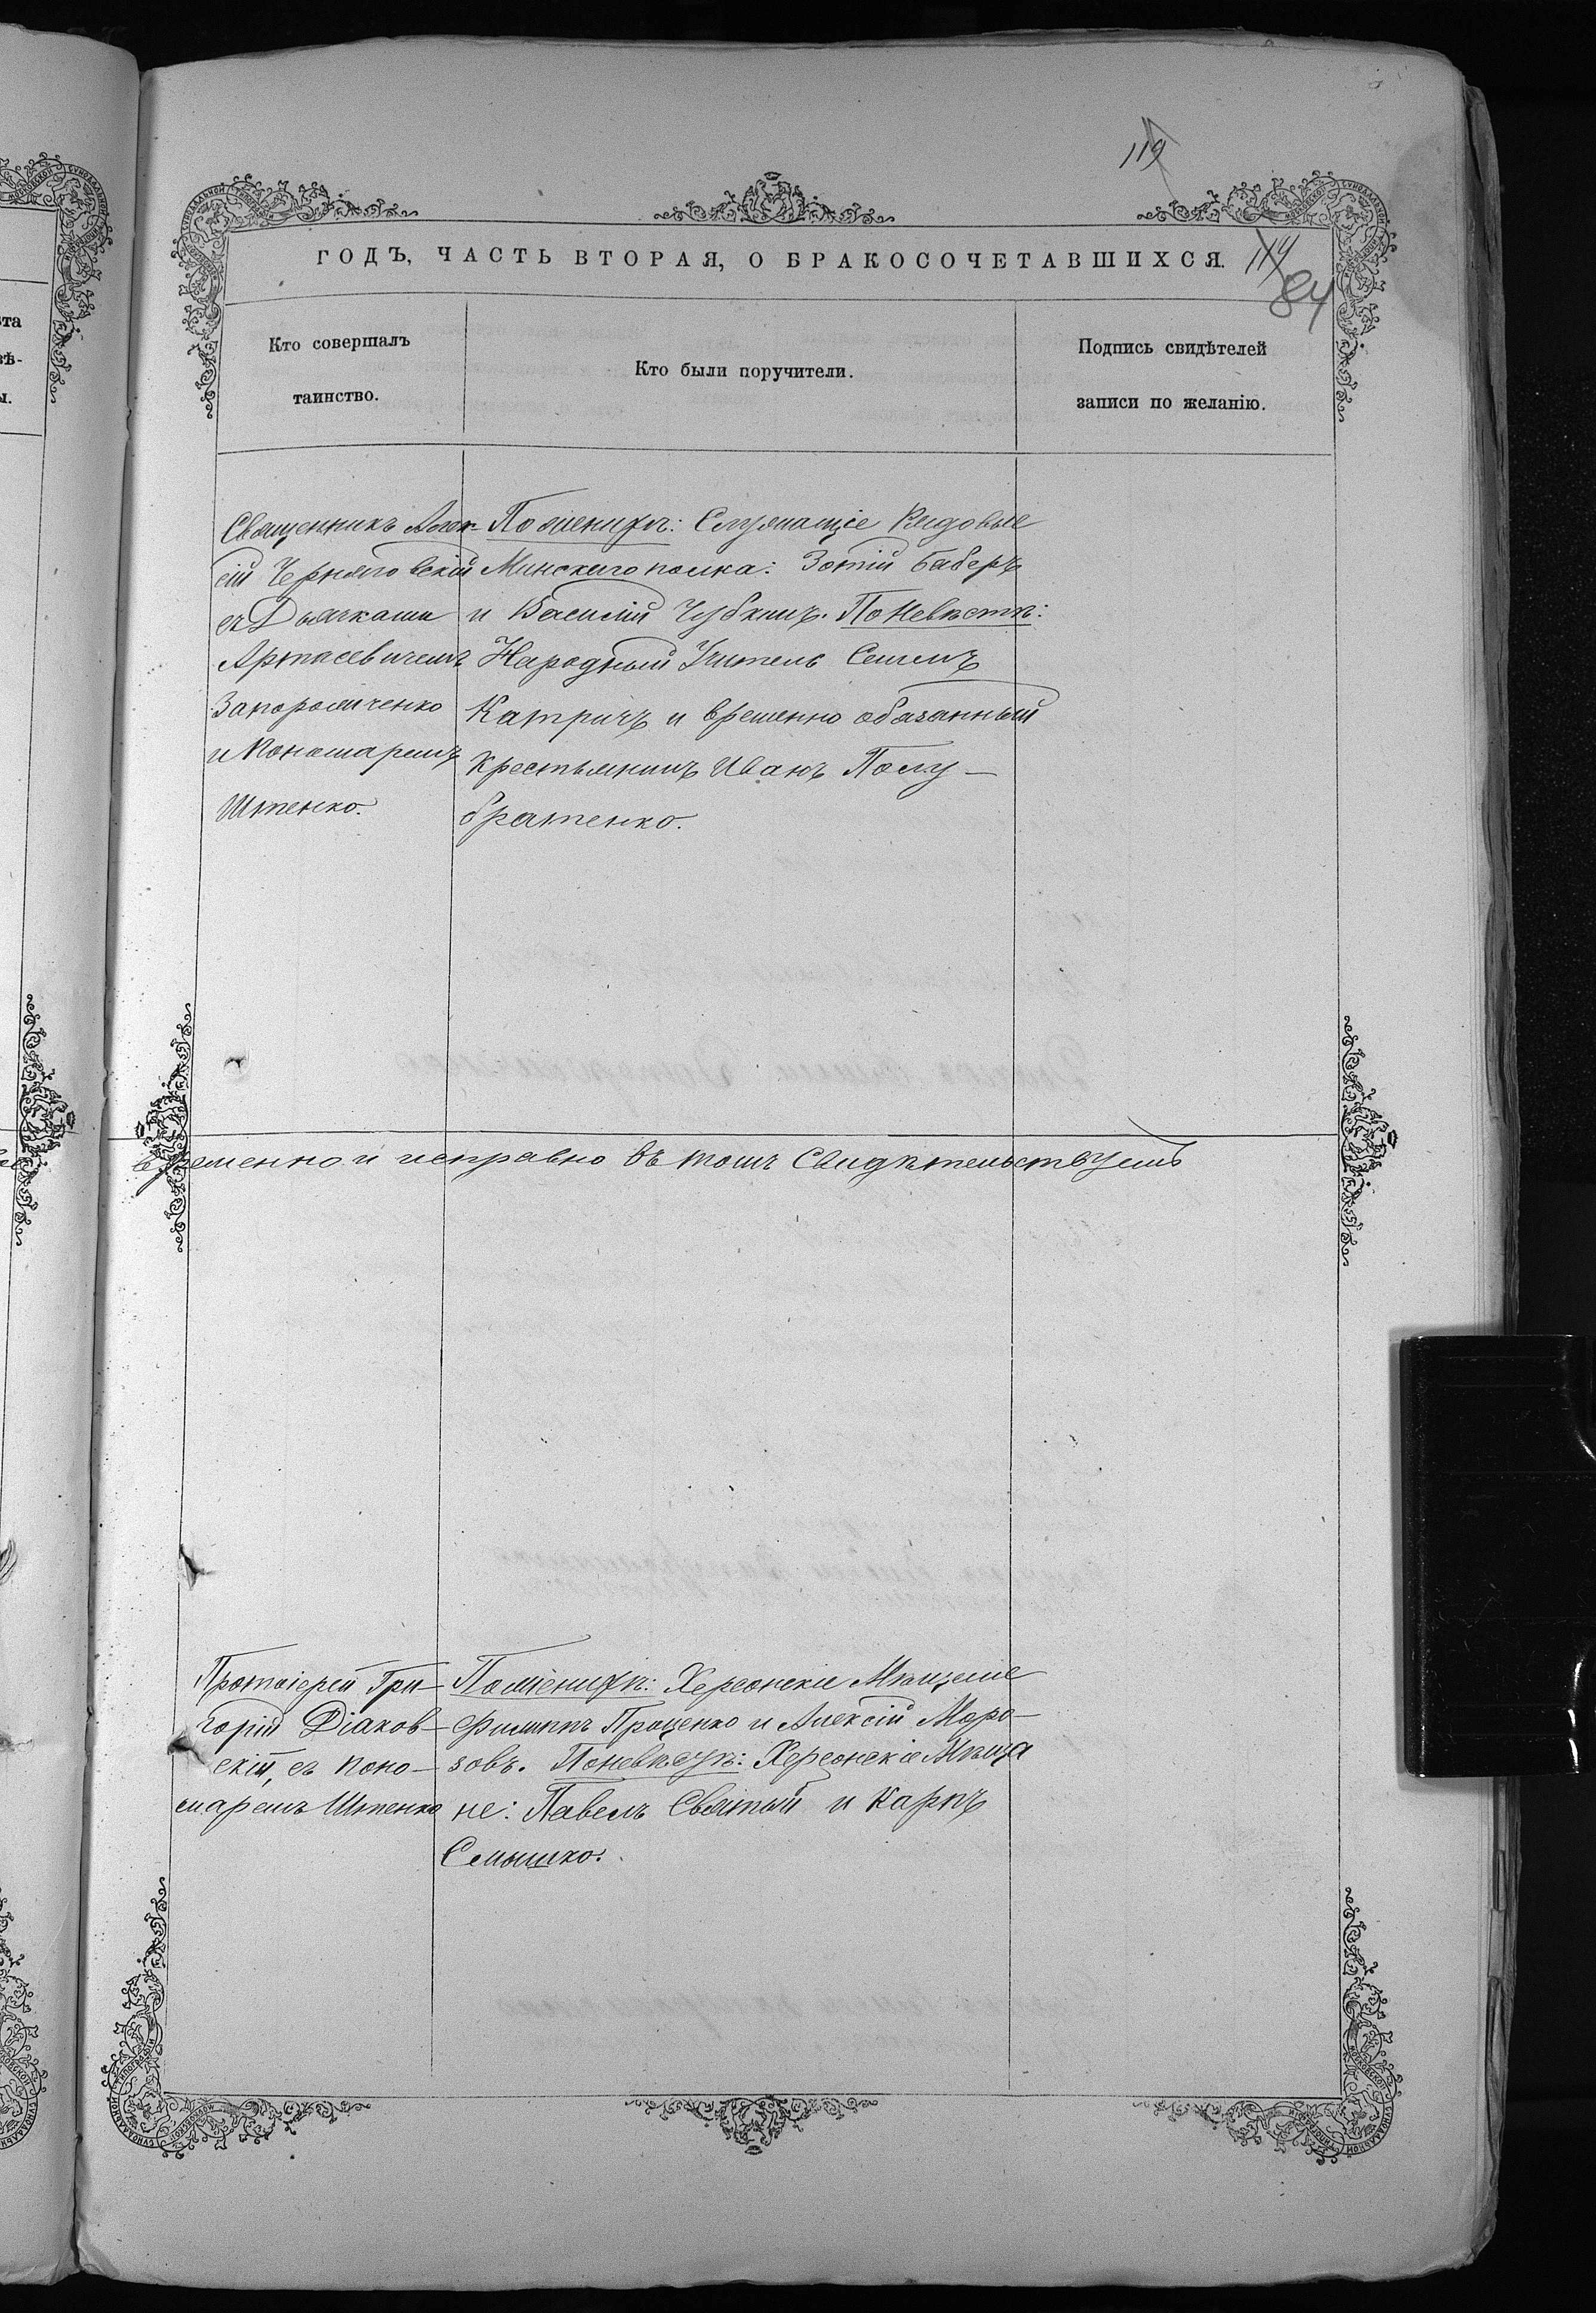 119
ГОДЪ, ЧАСТЬ ВТОРАЯ, О БРАКОСОЧЕТАВШИХСЯ.
114
84
Кто совершалъ
таинство.
Кто были поручители.
Подпись свидѣтелей
записи по желанію.
Священникъ Алек-
сій Черняговскій
съ Дьячками
Артасевичемъ
Запорожченко
и Пономаремъ
Штенко.
По женихѣ: Служащіе Рядовые
Минскаго полка: Зотій Баберъ
и Василій Чубкинъ. По Невѣстѣ:
Народный Учитель Семенъ
Катричъ и временно обязанный
крестьянинъ Иванъ Полу-
братенко.
временно и исправно въ томъ Свидѣтельствуемъ
Протоіерей Гри-
горій Діаков-
скій, съ поно-
маремъ Штенко
По женихѣ: Херсонскіе Мѣщане
Филиппъ Проценко и Алексій Моро-
зовъ. По невѣстѣ: Херсонскіе Мѣща
не: Павелъ Святый и Карпъ
Семышко.
та
вѣ-
ы.